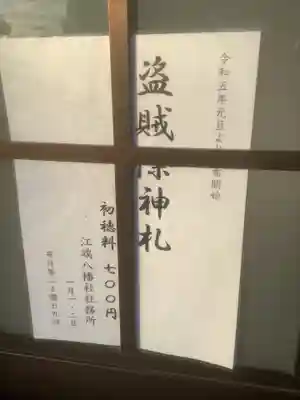 令和五年元旦より
開始
盗賊除神札
初穂料 七〇〇円
江端八幡社社務所
一月一・二日